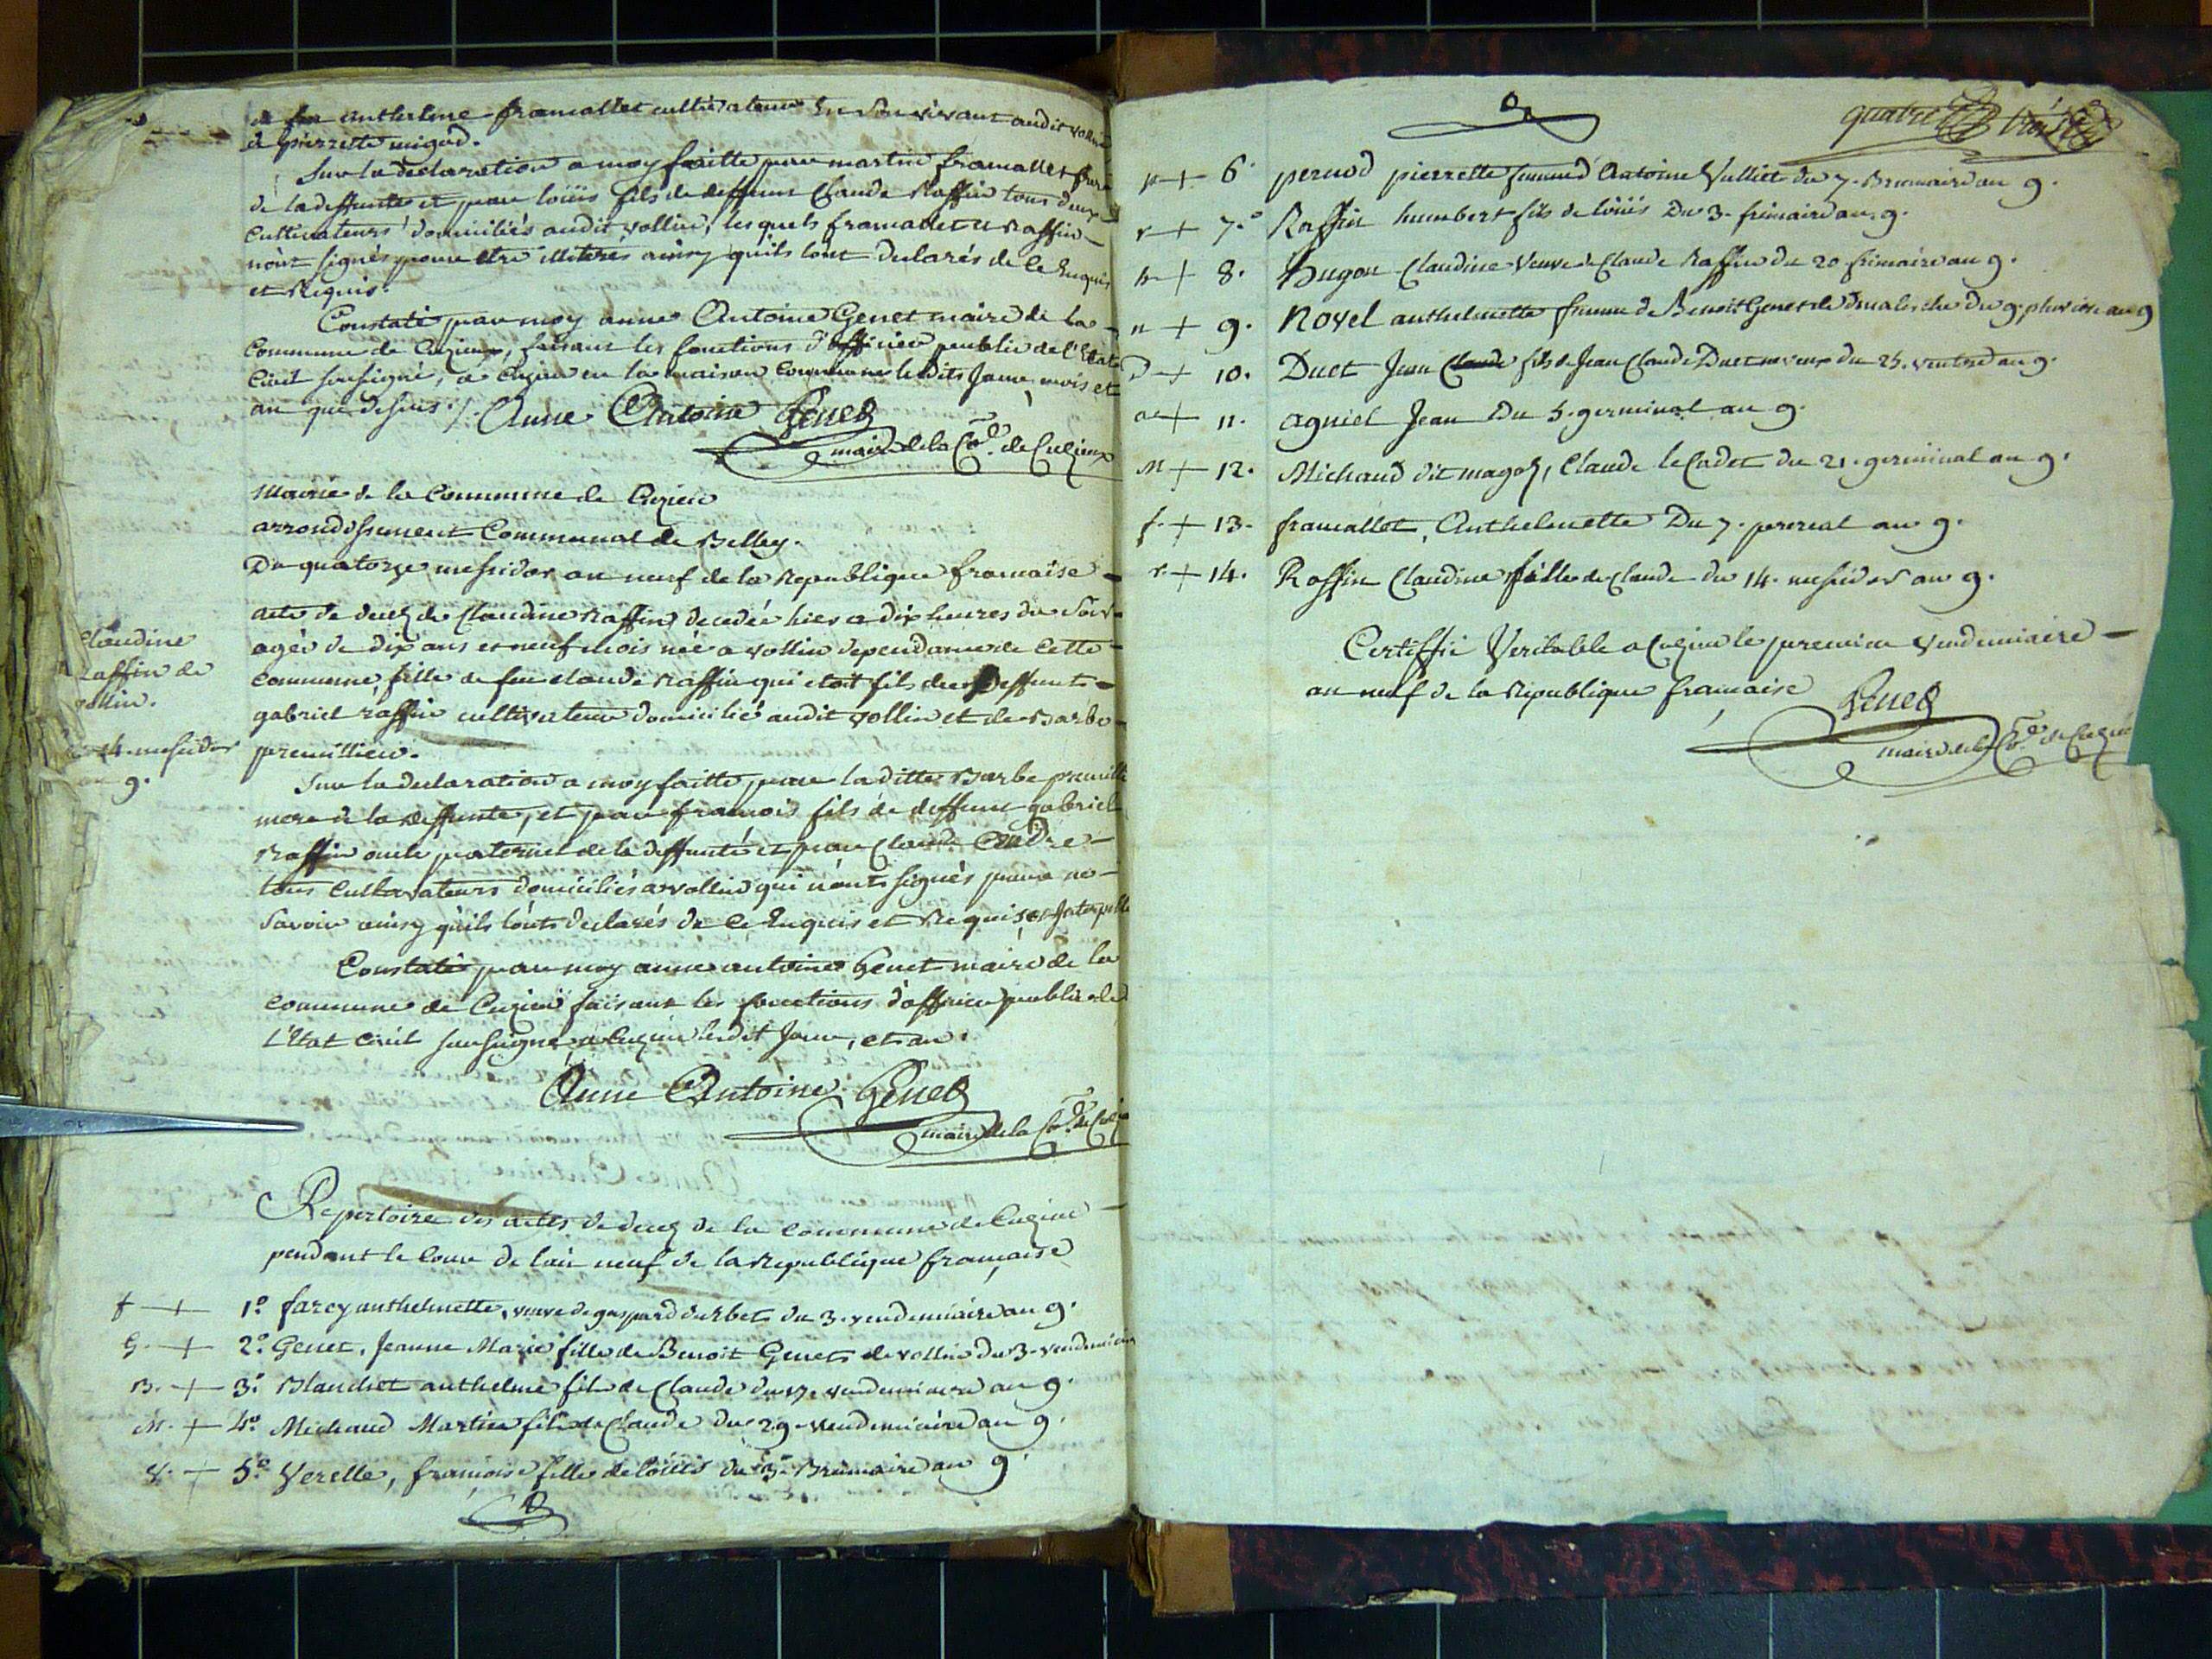 anthelme framallet cultivateur En Son vivant audit vollin
de pierrette migod.
Sur la declaration a moy faitte par martin framallet frere
de la deffunte et par loüis fils de deffunt Claude Raffin tous deux
Cultivateurs domiciliés audit vollin, lesquels framallet et Raffin
nont signés pour etre illiterés ainsy quils lont declarés de ce Enquis
et Requis.
Constaté par moy anne Antoine Genet maire de la
Commune de Cuzieu, faisant les fonctions d'officier public de l'Etat
Civil sousigné, a Cuzieu en la maison Commune le dits Jour, mois et
an que desus ./. Anne Antoine Genet
maire de la Cne. de Cuzieux
Mairie de la Commune de Cuzieu
arrondissement Communal de Belley.
Du quatorze messidor an neuf de la Republique francaise
acte de decez de Claudine Raffin decedée hier a dix heures du Soir
agée de dix ans et neuf mois née a vollin dependance de Cette
Commune, fille de feu claude Raffin qui etoit fils de Deffunt
gabriel raffin cultivateur domicilié audit vollin et de Barbe
premillieu.
Claudine
Raffin de
vollin.
14. messidor
an 9.
Sur la declaration a moy faitte par la ditte Barbe premillieu
mere de la deffunte, et par francois fils de deffunt gabriel
Raffin oncle paternel de la deffunte et par Claude Andre
tous Cultivateurs domiciliés a vollin qui n'onts signés pour ne
Savoir ainsy quils l'onts declarés de ce Enquis et Requis et Interpellé
Constaté par moy anne antoine Genet maire de la
commune de Cuzieu faisant les fonctions d'officier public de
l'Etat Civil sousigné, a Cuzieu ledit Jour, et an.
Anne Antoine Genet
maire de la Cne. de Cuzieu
Repertoire des actes de decez de la commune de Cuzieu
pendant le Cour de l'an neuf de la Republique française
f + 1º farcy anthelmette, veuve de gaspard durbet du 3. vendemiaire an 9.
G. + 2º. Genet, Jeanne Marie fille de Benoit Genet de vollin du 3. vendemiaire
B. + 3º. Blanchet anthelme fils de Claude du 17. vendemiaire an 9.
M. + 4º. Michaud Martin fils de Claude du 29. vendemiaire an 9.
V. + 5º. Verelle, francoise fille de loüis du 3. Brumaire an 9.
quatre trois
p + 6. pernod pierrette femme d'Antoine Vulliet du 7. Brumaire an 9.
r + 7.º Raffin humbert fils de loüis Du 3. frimaire an 9.
h + 8. Hugon Claudine Veuve de Claude Raffin du 20 frimaire an 9.
n + 9. Novel anthelmette femme de Benoit Genet de du 9. pluviose an 9
D + 10. Duet Jean Claude fils de Jean Claude Duet du 25. ventose an 9.
a + 11. agniel Jean Du 5. germinal an 9.
M + 12. Michaud dit magoz, Claude le Cadet du 21. germinal an 9.
f. + 13. framallet, Anthelmette Du 7. prerial an 9.
r. + 14. Raffin Claudine fille de Claude du 14. messidor an 9.
Certiffié Veritable a Cuzieu le premier Vendemiaire
an neuf de la Republique francaise Genet
maire de la Cne. de Cuzieu